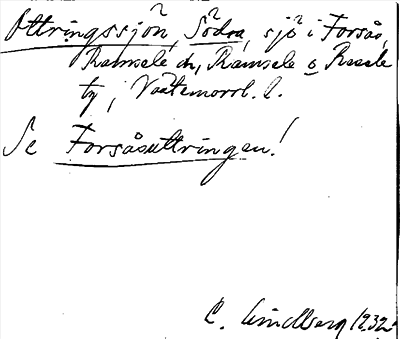 Uttringssjön, Södra, sjö i Forsås,
Ramsele sn, Ramsele o Resele
tg, Västernorrl. l.
Se Forsåsuttringen!
C. Lindberg 1932